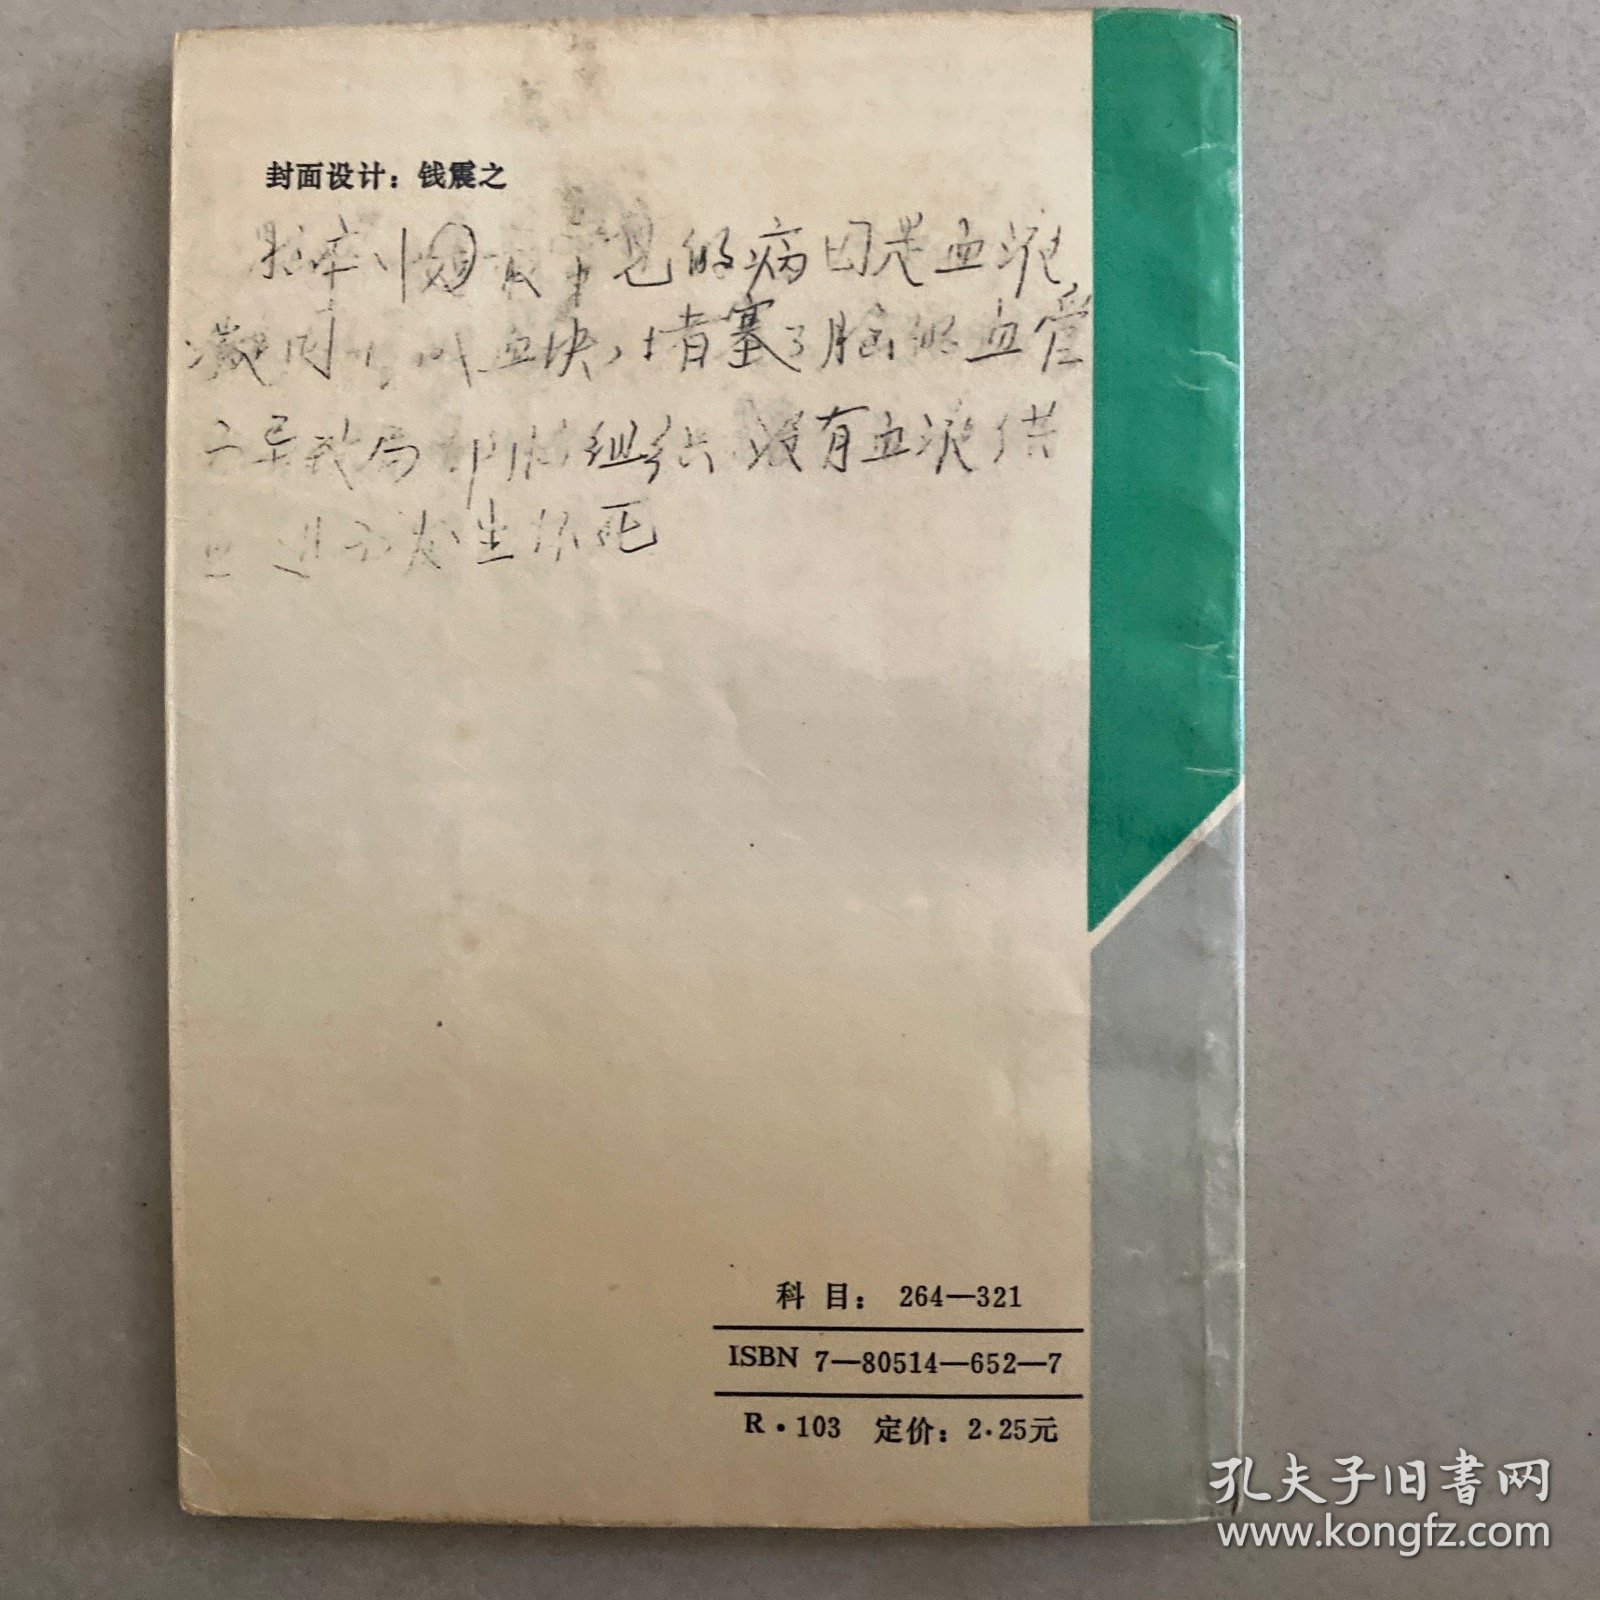 封面设计：钱震之
脑卒中最常见的病因是血液
凝固形成血块，堵塞了脑的血管
导致局部脑组织没有血液供
进而发生坏死
科 目： 264—321
ISBN 7—80514—652—7
R·103 定价：2.25元
孔夫子旧书网
www.kongfz.com